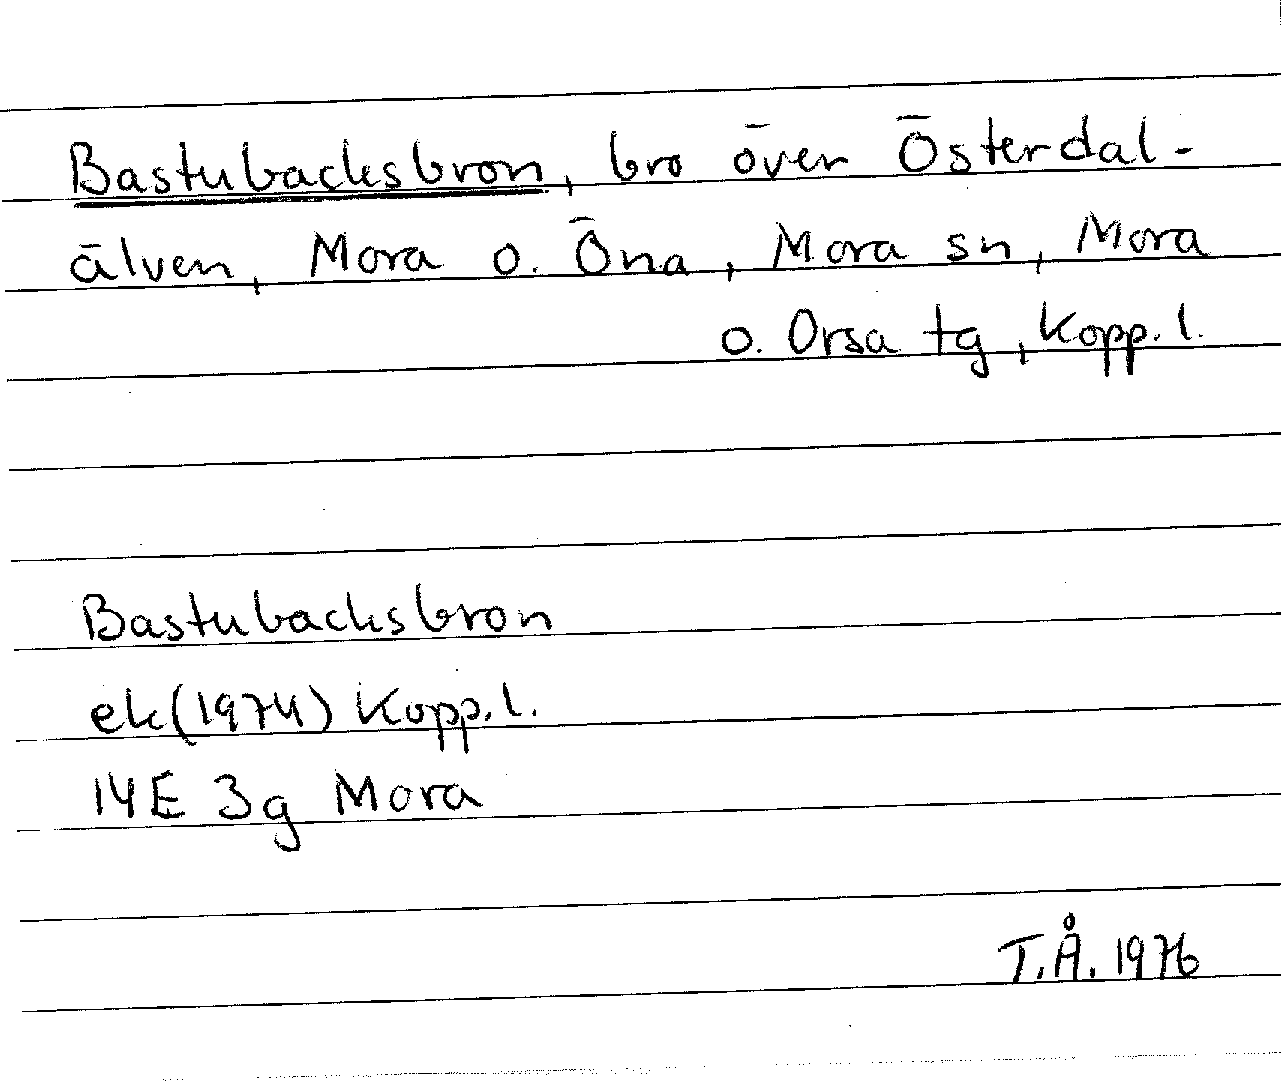 Bastubacksbron, bro över Österdal-
älven, Mora o. Öna, Mora sn, Mora
o. Orsa tg, Kopp. l.
Bastubacksbron
ek(1974) Kopp. l.
14E 3g Mora
T.Å. 1976